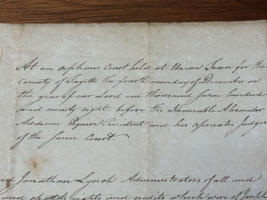 At an orphans Court held at Union Town for the
County of Fayette the fourth monday of December in
the year of our Lord one thousand seven hundred
and ninety eight before the Honorable Alexander
Addison Esquire President and his associate Judges
of the same Court.
Jonathan Lynch Administrator of all and